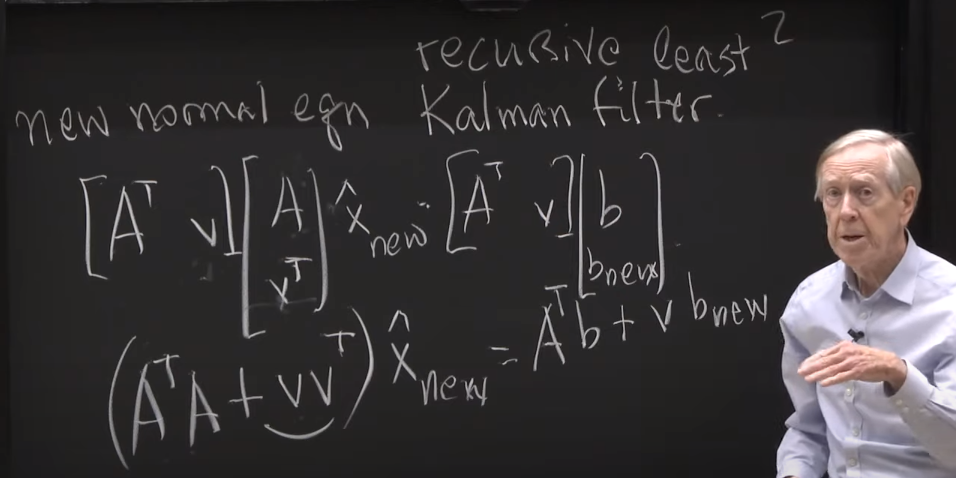 recursive least²
new normal eqn Kalman filter.
[Aᵀ v] [A vᵀ] x̂ new = [Aᵀ v] [b b new]
(AᵀA + vvᵀ) x̂ new = Aᵀb + v b new